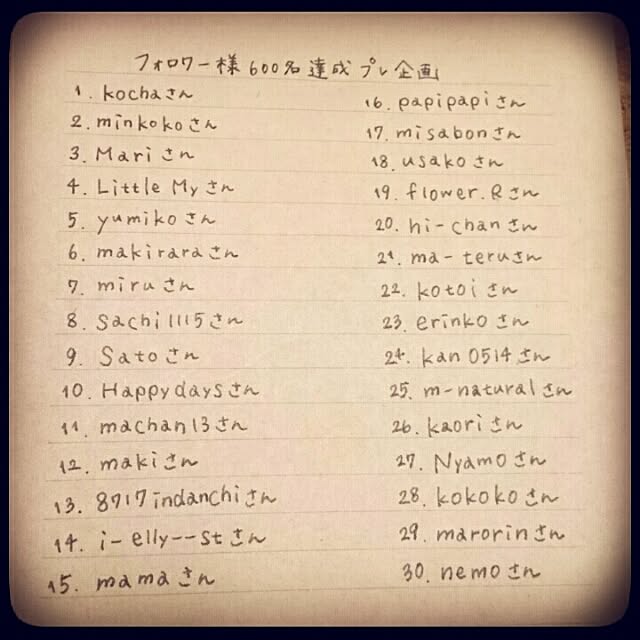 フォロワー様600名達成プレ企画
1. kochaさん
2. minkokoさん
3. Mariさん
4. Little Myさん
5. yumikoさん
6. makiraraさん
7. miruさん
8. Sachi1115さん
9. Satoさん
10. Happydaysさん
11. machan13さん
12. makiさん
13. 8717indanchiさん
14. i-elly--stさん
15. mamaさん
16. papipapiさん
17. misabonさん
18. usakoさん
19. flower.Rさん
20. hi-chanさん
21. ma-teruさん
22. kotoiさん
23. erinkoさん
24. kan0514さん
25. m-naturalさん
26. kaoriさん
27. Nyamoさん
28. kokokoさん
29. marorinさん
30. nemoさん